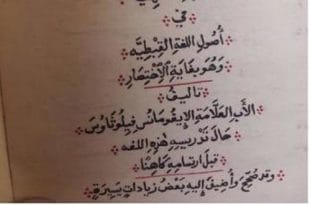 في
أُصُولِ اللغةِ القِبْطِيَّه
وَهُوَ بِغَايَةِ الْاِخْتِصَارِ
تأليفُ
الأَبِ العَلَّامَةِ الإِيغُومَانُسِ فِيلُوثَاوُسَ
حَالَ تَدْرِيسِهِ هٰذِهِ اللغه
قبلَ ارتِسَامِهِ كَاهِنًا
وقد صُحِّحَ وَأُضِيفَ إِلَيْهِ بَعْضُ زِيَادَاتٍ يَسِيرَةٍ